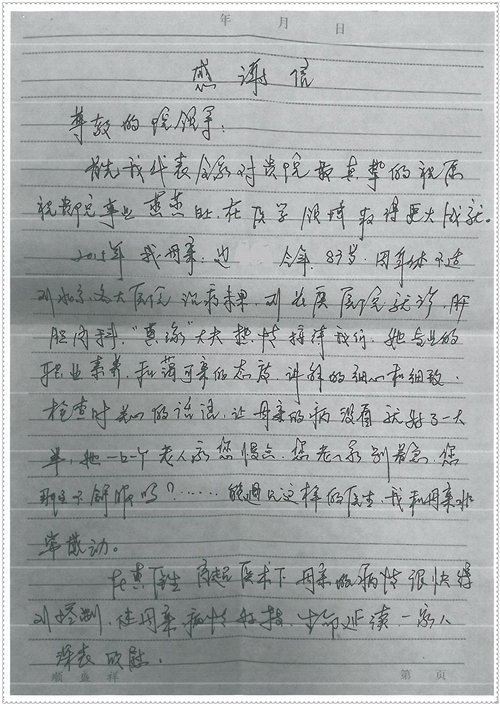 年 月 日
感谢信
尊敬的院领导:
首先我代表全家对贵院最真挚的祝愿
祝贵院事业蒸蒸日上,在医学领域取得更大成就。
2015年 我母亲,边 今年.83岁,因身体不适
到北京各大医院诊病未果,到 医院就诊,肝
胆内科,“惠 ”大夫热情接待我们,她专业的
职业素养,和蔼可亲的态度,讲解的细心和细致,
检查时关心的话语,让母亲的病没看就好了一大
半,她一口一个老人家您慢点,您老人家别着急,您
那里不舒服吗?……能遇见这样的医生,我和母亲非
常感动。
在惠医生高超医术下母亲的病情很快得
到控制,使母亲病情好转,生命延续一家人
深表欣慰。
顺盛祥 第 页